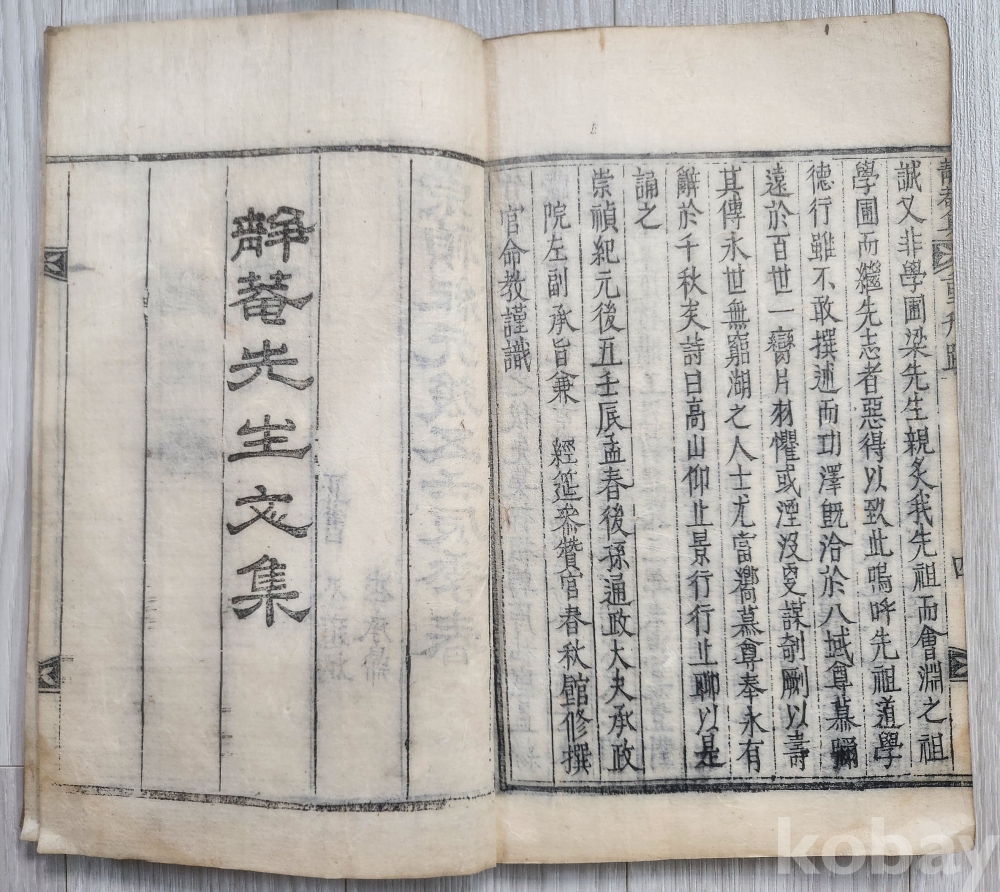 誠又非學圃梁先生親炙我先祖而會淵之祖
學圃而繼先志者惡得以致此嗚呼先祖道學
德行雖不敢撰述而功澤旣洽於八域尊慕彌
遠於百世一臠片羽懼或湮沒更謀剞劂以壽
其傳永世無窮湖之人士尤當嚮慕尊奉永有
辭於千秋矣詩曰高山仰止景行行止聊以是
誦之
崇禎紀元後五壬辰孟春後孫通政大夫承政
院左副承旨兼 經筵參贊官春秋館修撰
官命教謹識
靜菴先生文集
四
kobay